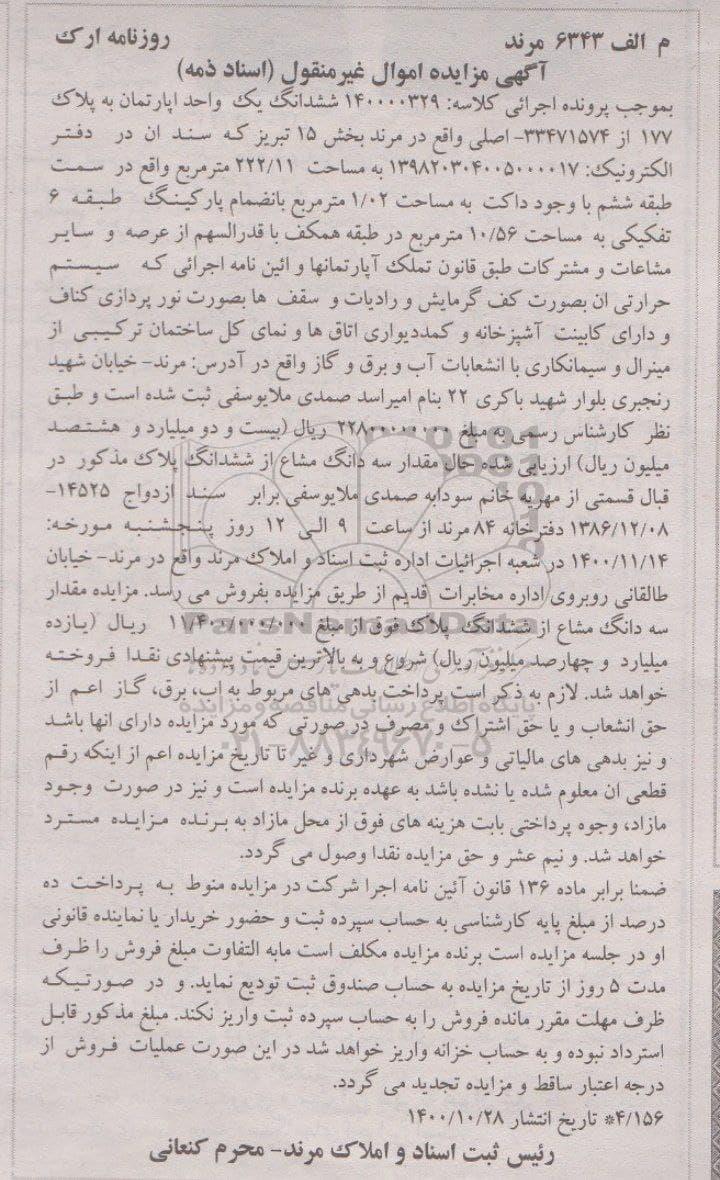 م الف ۶۳۴۳ مرند روزنامه ارک
آگهی مزایده اموال غیرمنقول (اسناد ذمه)
بموجب پرونده اجرائی کلاسه: ۱۴۰۰۰۰۳۲۹ ششدانگ یک واحد اپارتمان به پلاک
۱۷۷ از ۳۳۴۷۱۵۷۴- اصلی واقع در مرند بخش ۱۵ تبریز که سند ان در دفتر
الکترونیک: ۱۳۹۸۲۰۳۰۴۰۰۵۰۰۰۰۱۷ به مساحت ۲۲۲/۱۱ مترمربع واقع در سمت
طبقه ششم با وجود داکت به مساحت ۱/۰۲ مترمربع بانضمام پارکینگ طبقه ۶
تفکیکی به مساحت ۱۰/۵۶ مترمربع در طبقه همکف با قدرالسهم از عرصه و سایر
مشاعات و مشترکات طبق قانون تملک آپارتمانها و ائین نامه اجرائی که سیستم
حرارتی ان بصورت کف گرمایش و رادیات و سقف ها بصورت نور پردازی کناف
و دارای کابینت آشپزخانه و کمددیواری اتاق ها و نمای کل ساختمان ترکیبی از
مینرال و سیمانکاری با انشعابات آب و برق و گاز واقع در آدرس: مرند- خیابان شهید
رنجبری بلوار شهید باکری ۲۲ بنام امیراسد صمدی ملایوسفی ثبت شده است و طبق
نظر کارشناس رسمی به مبلغ ۲۲۸۰۰۰۰۰۰۰۰ ریال (بیست و دو میلیارد و هشتصد
میلیون ریال) ارزیابی شده حال مقدار سه دانگ مشاع از ششدانگ پلاک مذکور در
قبال قسمتی از مهریه خانم سودابه صمدی ملایوسفی برابر سند ازدواج ۱۴۵۲۵-
۱۳۸۶/۱۲/۰۸ دفترخانه ۸۴ مرند از ساعت ۹ الی ۱۲ روز پنجشنبه مورخه:
۱۴۰۰/۱۱/۱۴ در شعبه اجرائیات اداره ثبت اسناد و املاک مرند واقع در مرند- خیابان
طالقانی روبروی اداره مخابرات قدیم از طریق مزایده بفروش می رسد. مزایده مقدار
سه دانگ مشاع از ششدانگ پلاک فوق از مبلغ ۱۱/۴۰۰/۰۰۰/۰۰۰ ریال (یازده
میلیارد و چهارصد میلیون ریال) شروع و به بالاترین قیمت پیشنهادی نقدا فروخته
خواهد شد. لازم به ذکر است پرداخت بدهی های مربوط به اب، برق، گاز اعم از
حق انشعاب و یا حق اشتراک و مصرف در صورتی که مورد مزایده دارای انها باشد
و نیز بدهی های مالیاتی و عوارض شهرداری و غیر تا تاریخ مزایده اعم از اینکه رقم
قطعی ان معلوم شده یا نشده باشد به عهده برنده مزایده است و نیز در صورت وجود
مازاد، وجوه پرداختی بابت هزینه های فوق از محل مازاد به برنده مزایده مسترد
خواهد شد. و نیم عشر و حق مزایده نقدا وصول می گردد.
ضمنا برابر ماده ۱۳۶ قانون آئین نامه اجرا شرکت در مزایده منوط به پرداخت ده
درصد از مبلغ پایه کارشناسی به حساب سپرده ثبت و حضور خریدار یا نماینده قانونی
او در جلسه مزایده است برنده مزایده مکلف است مابه التفاوت مبلغ فروش را ظرف
مدت ۵ روز از تاریخ مزایده به حساب صندوق ثبت تودیع نماید. و در صورتیکه
ظرف مهلت مقرر مانده فروش را به حساب سپرده ثبت واریز نکند. مبلغ مذکور قابل
استرداد نبوده و به حساب خزانه واریز خواهد شد در این صورت عملیات فروش از
درجه اعتبار ساقط و مزایده تجدید می گردد.
۴/۱۵۶* تاریخ انتشار ۱۴۰۰/۱۰/۲۸
رئیس ثبت اسناد و املاک مرند- محرم کنعانی
ParsNamadData
پایگاه اطلاع رسانی مناقصه و مزایده
۰۲۱-۸۸۳۴۹۶۷۰-۵